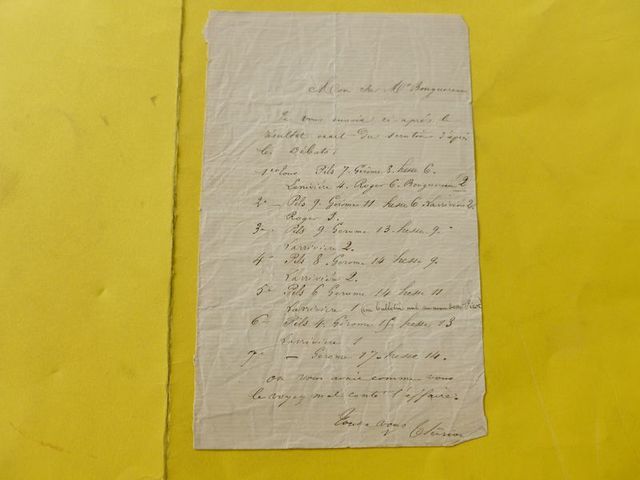 Mon cher Mr Bouguereau
Je vous envoie ci-après le
résultat exact du scrutin d'après
les Débats:
1er tour Pils 7. Gérôme 8. hesse 6.
Larivière 4. Roger 6. Bouguereau 2
2e — Pils 9. Gérôme 11. hesse 6 Larrivière 2
Roger 3.
3e Pils 9 Gerome 13. hesse 9.
Larrivière 2.
4e Pils 8. Gerome 14 hesse 9.
Larrivière 2.
5e Pils 6 Gerome 14 hesse 11
Larrivière 1 (un bulletin nul
6e Pils 4. Gérome 15. hesse 13
Larrivière 1
7e — Gérome 17. hesse 14.
on vous avait comme vous
le voyez mal conté l'affaire.
Tout à vous